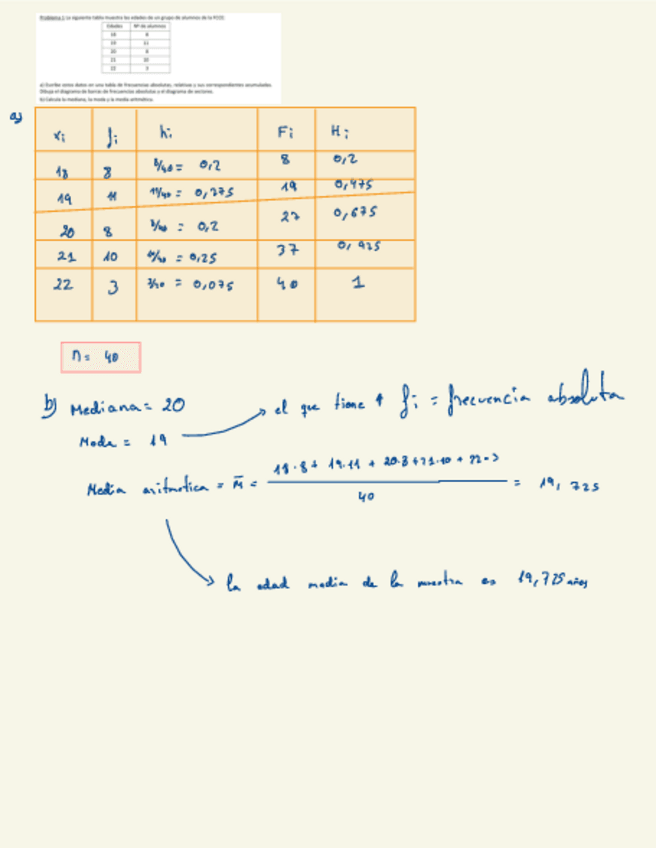 Problema 1 La siguiente tabla muestra las edades de un grupo de alumnos de la FCCE:
Edades Nº de alumnos
18 8
19 11
20 8
21 10
22 3
a) Escribe estos datos en una tabla de frecuencias absolutas, relativas y sus correspondientes acumuladas.
Dibuja el diagrama de barras de frecuencias absolutas y el diagrama de sectores.
b) Calcula la mediana, la moda y la media aritmética.
a)
xi fi hi Fi Hi
18 8 8/40 = 0,2 8 0,2
19 11 11/40 = 0,275 19 0,475
20 8 8/40 = 0,2 27 0,675
21 10 10/40 = 0,25 37 0,925
22 3 3/40 = 0,075 40 1
n = 40
b) Mediana = 20
el que tiene ↑ fi = frecuencia absoluta
Moda = 19
18·8 + 19·11 + 20·8 + 21·10 + 22·3
Media aritmetica = M̄ = = 19,725
40
la edad media de la muestra es 19,725 años